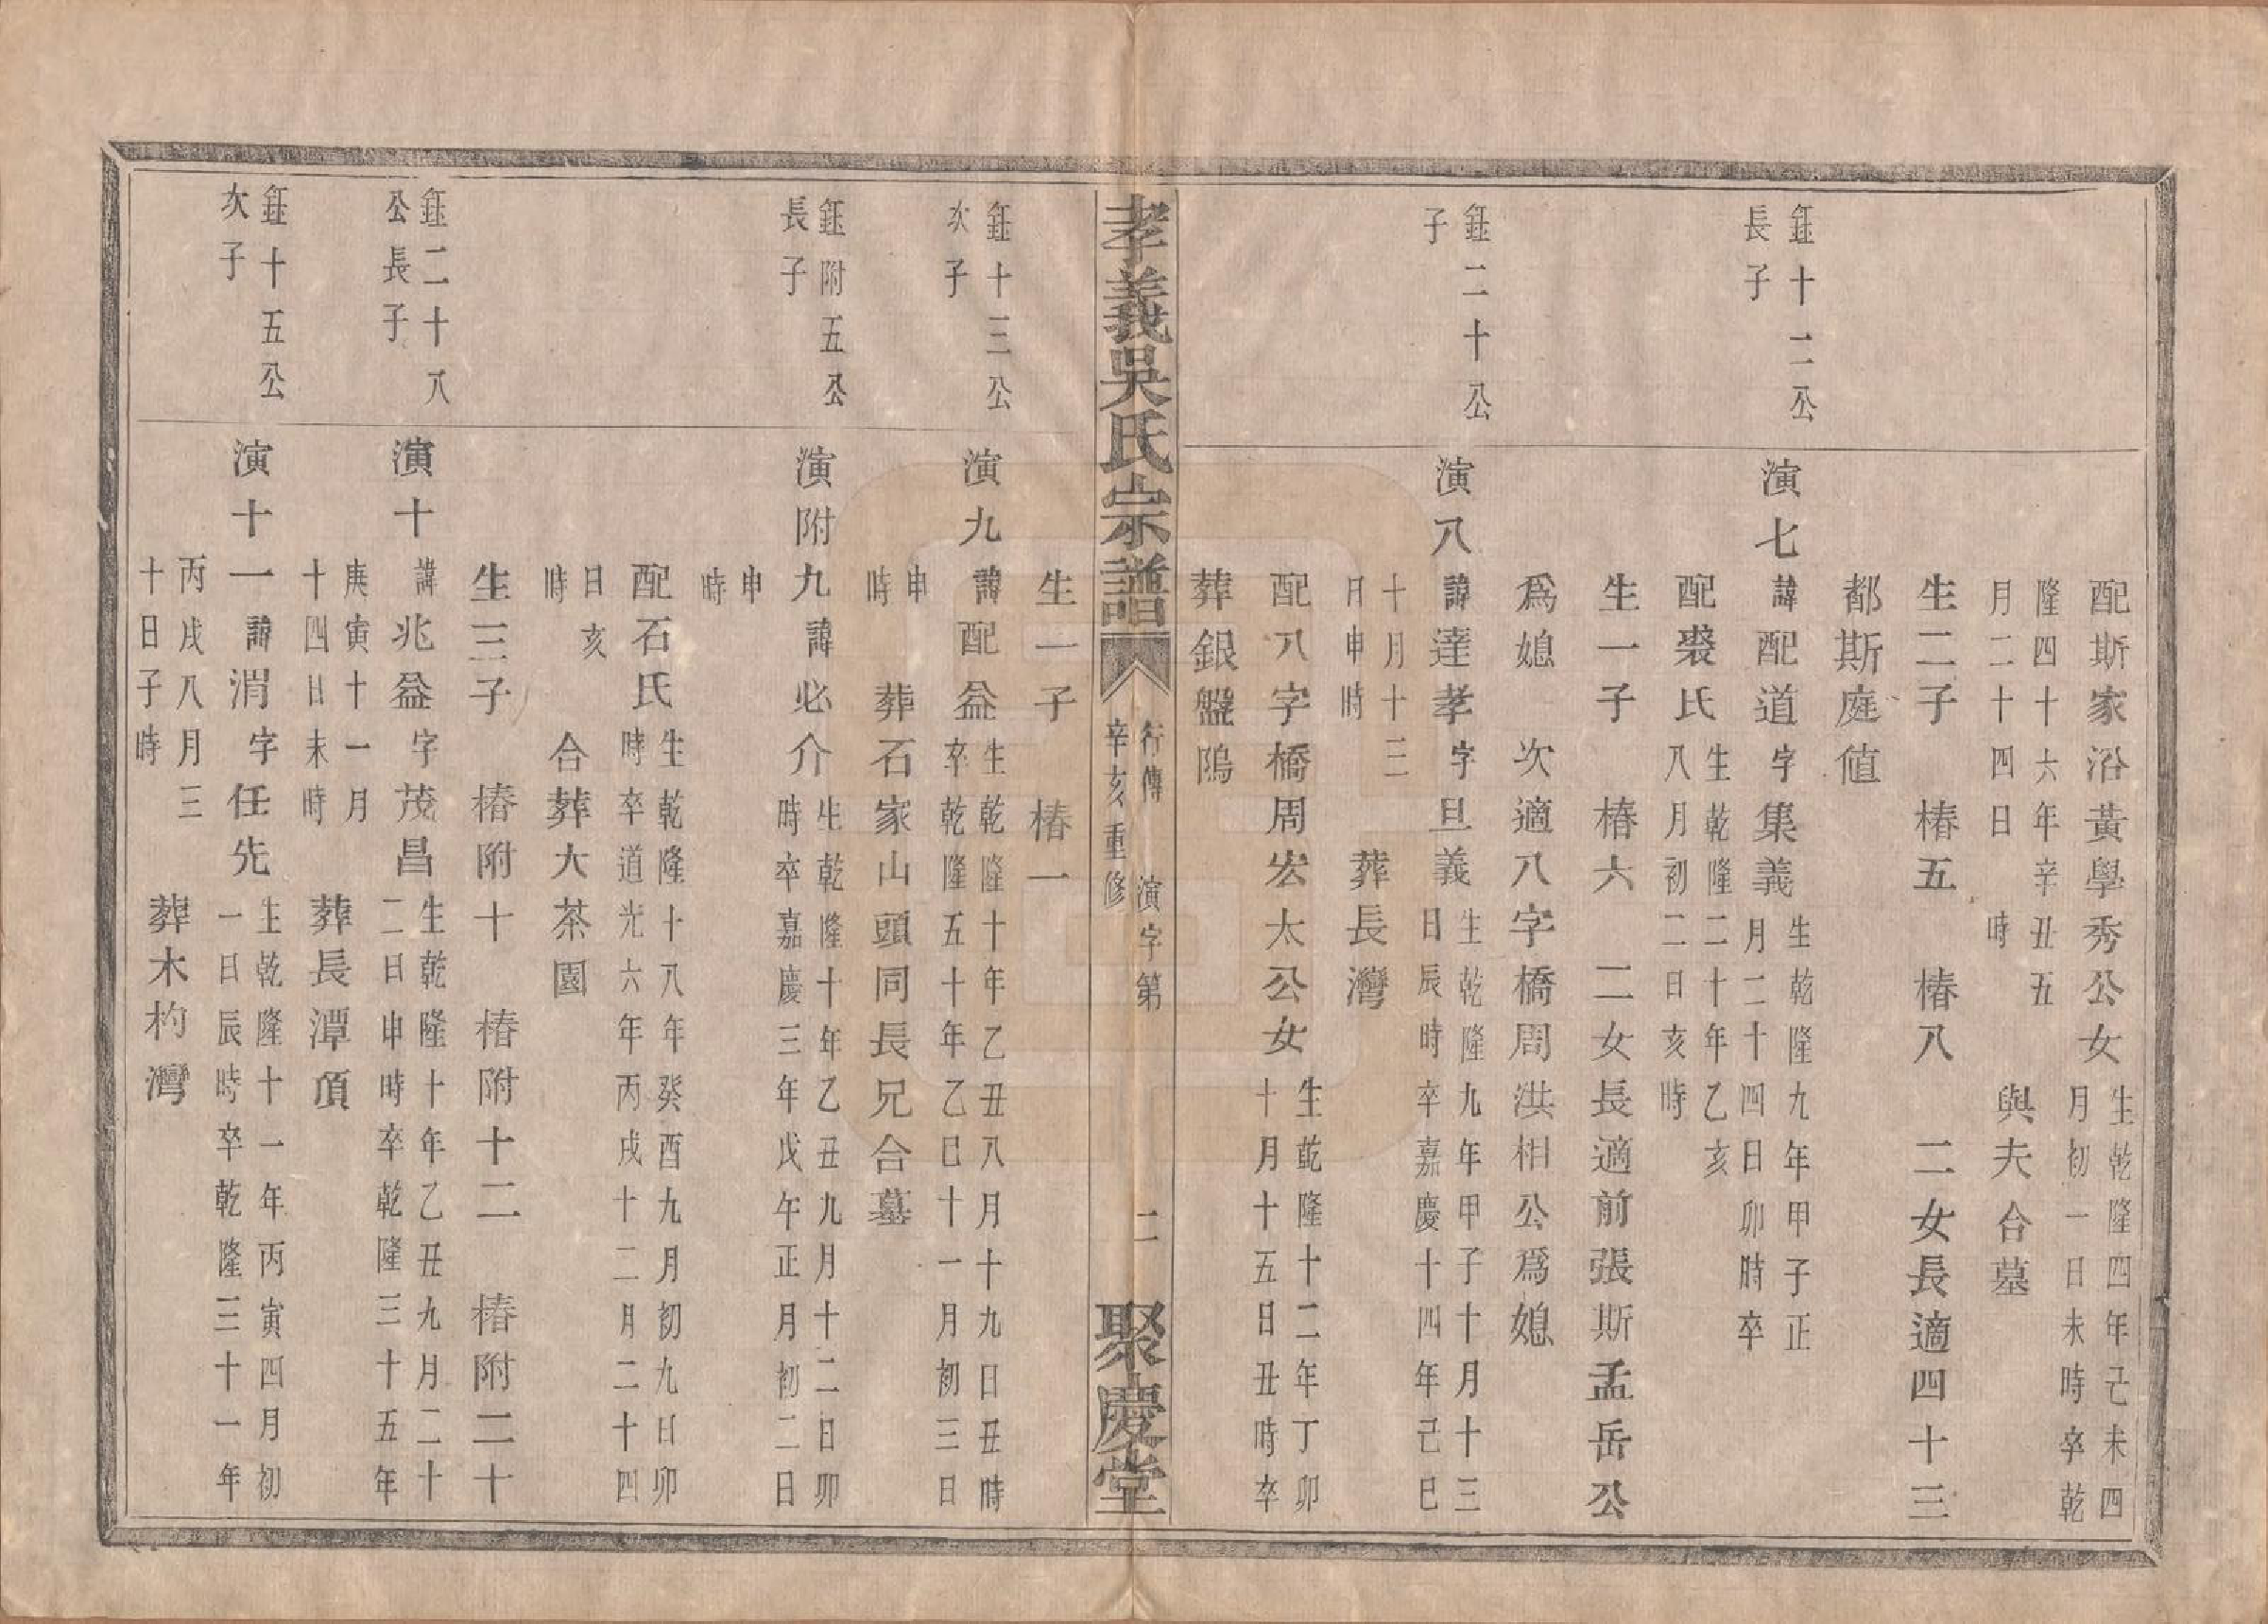 配斯家沿黃學秀公女生乾隆四年己未四
月初一日未時卒乾
隆四十六年辛丑五
月二十四日時與夫合墓
生二子 椿五 椿八 二女長適四十三
都斯庭值
鈺十二公
長子
演七諱配道字集義生乾隆九年甲子正
月二十四日卯時卒
配裘氏生乾隆二十年乙亥
八月初二日亥時
生一子 椿六 二女長適前張斯孟岳公
爲媳 次適八字橋周洪相公爲媳
鈺二十公
子
演八諱達孝字旦義生乾隆九年甲子十月十三
日辰時卒嘉慶十四年己巳
十月十三
日申時葬長灣
配八字橋周宏太公女生乾隆十二年丁卯
十月十五日丑時卒
葬銀盤隖
孝義吳氏宗譜
行傳 演字第 二
辛亥重修
聚慶堂
生一子 椿一
鈺十三公
次子
演九諱配益生乾隆十年乙丑八月十九日丑時
卒乾隆五十年乙巳十一月初三日
申
時葬石家山頭同長兄合墓
鈺附五公
長子
演附九諱必介生乾隆十年乙丑九月十二日卯
時卒嘉慶三年戊午正月初二日
申
時
配石氏生乾隆十八年癸酉九月初九日卯
時卒道光六年丙戌十二月二十四
日亥
時合葬大茶園
生三子 椿附十 椿附十二 椿附二十
鈺二十八
公長子
演十諱兆益字茂昌生乾隆十年乙丑九月二十
二日申時卒乾隆三十五年
庚寅十一月
十四日未時葬長潭頂
鈺十五公
次子
演十一諱渭字任先生乾隆十一年丙寅四月初
一日辰時卒乾隆三十一年
丙戌八月三
十日子時葬木杓灣